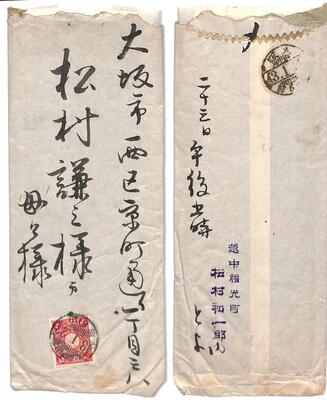 大阪市西区京町通り一丁目三八
松村謙三様方
母上様
二十三日午後出時
越中福光町
松村和一郎内
とよ